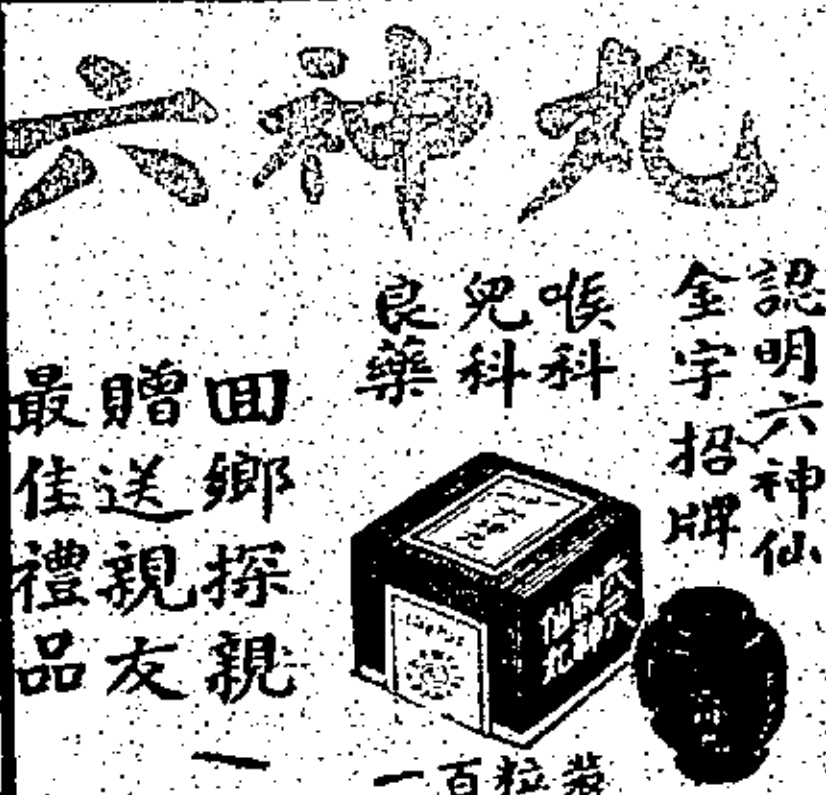 六神丸
認明六神仙
金字招牌
喉科
兒科
良藥
囬鄉探親
贈送親友
最佳禮品
一百粒裝